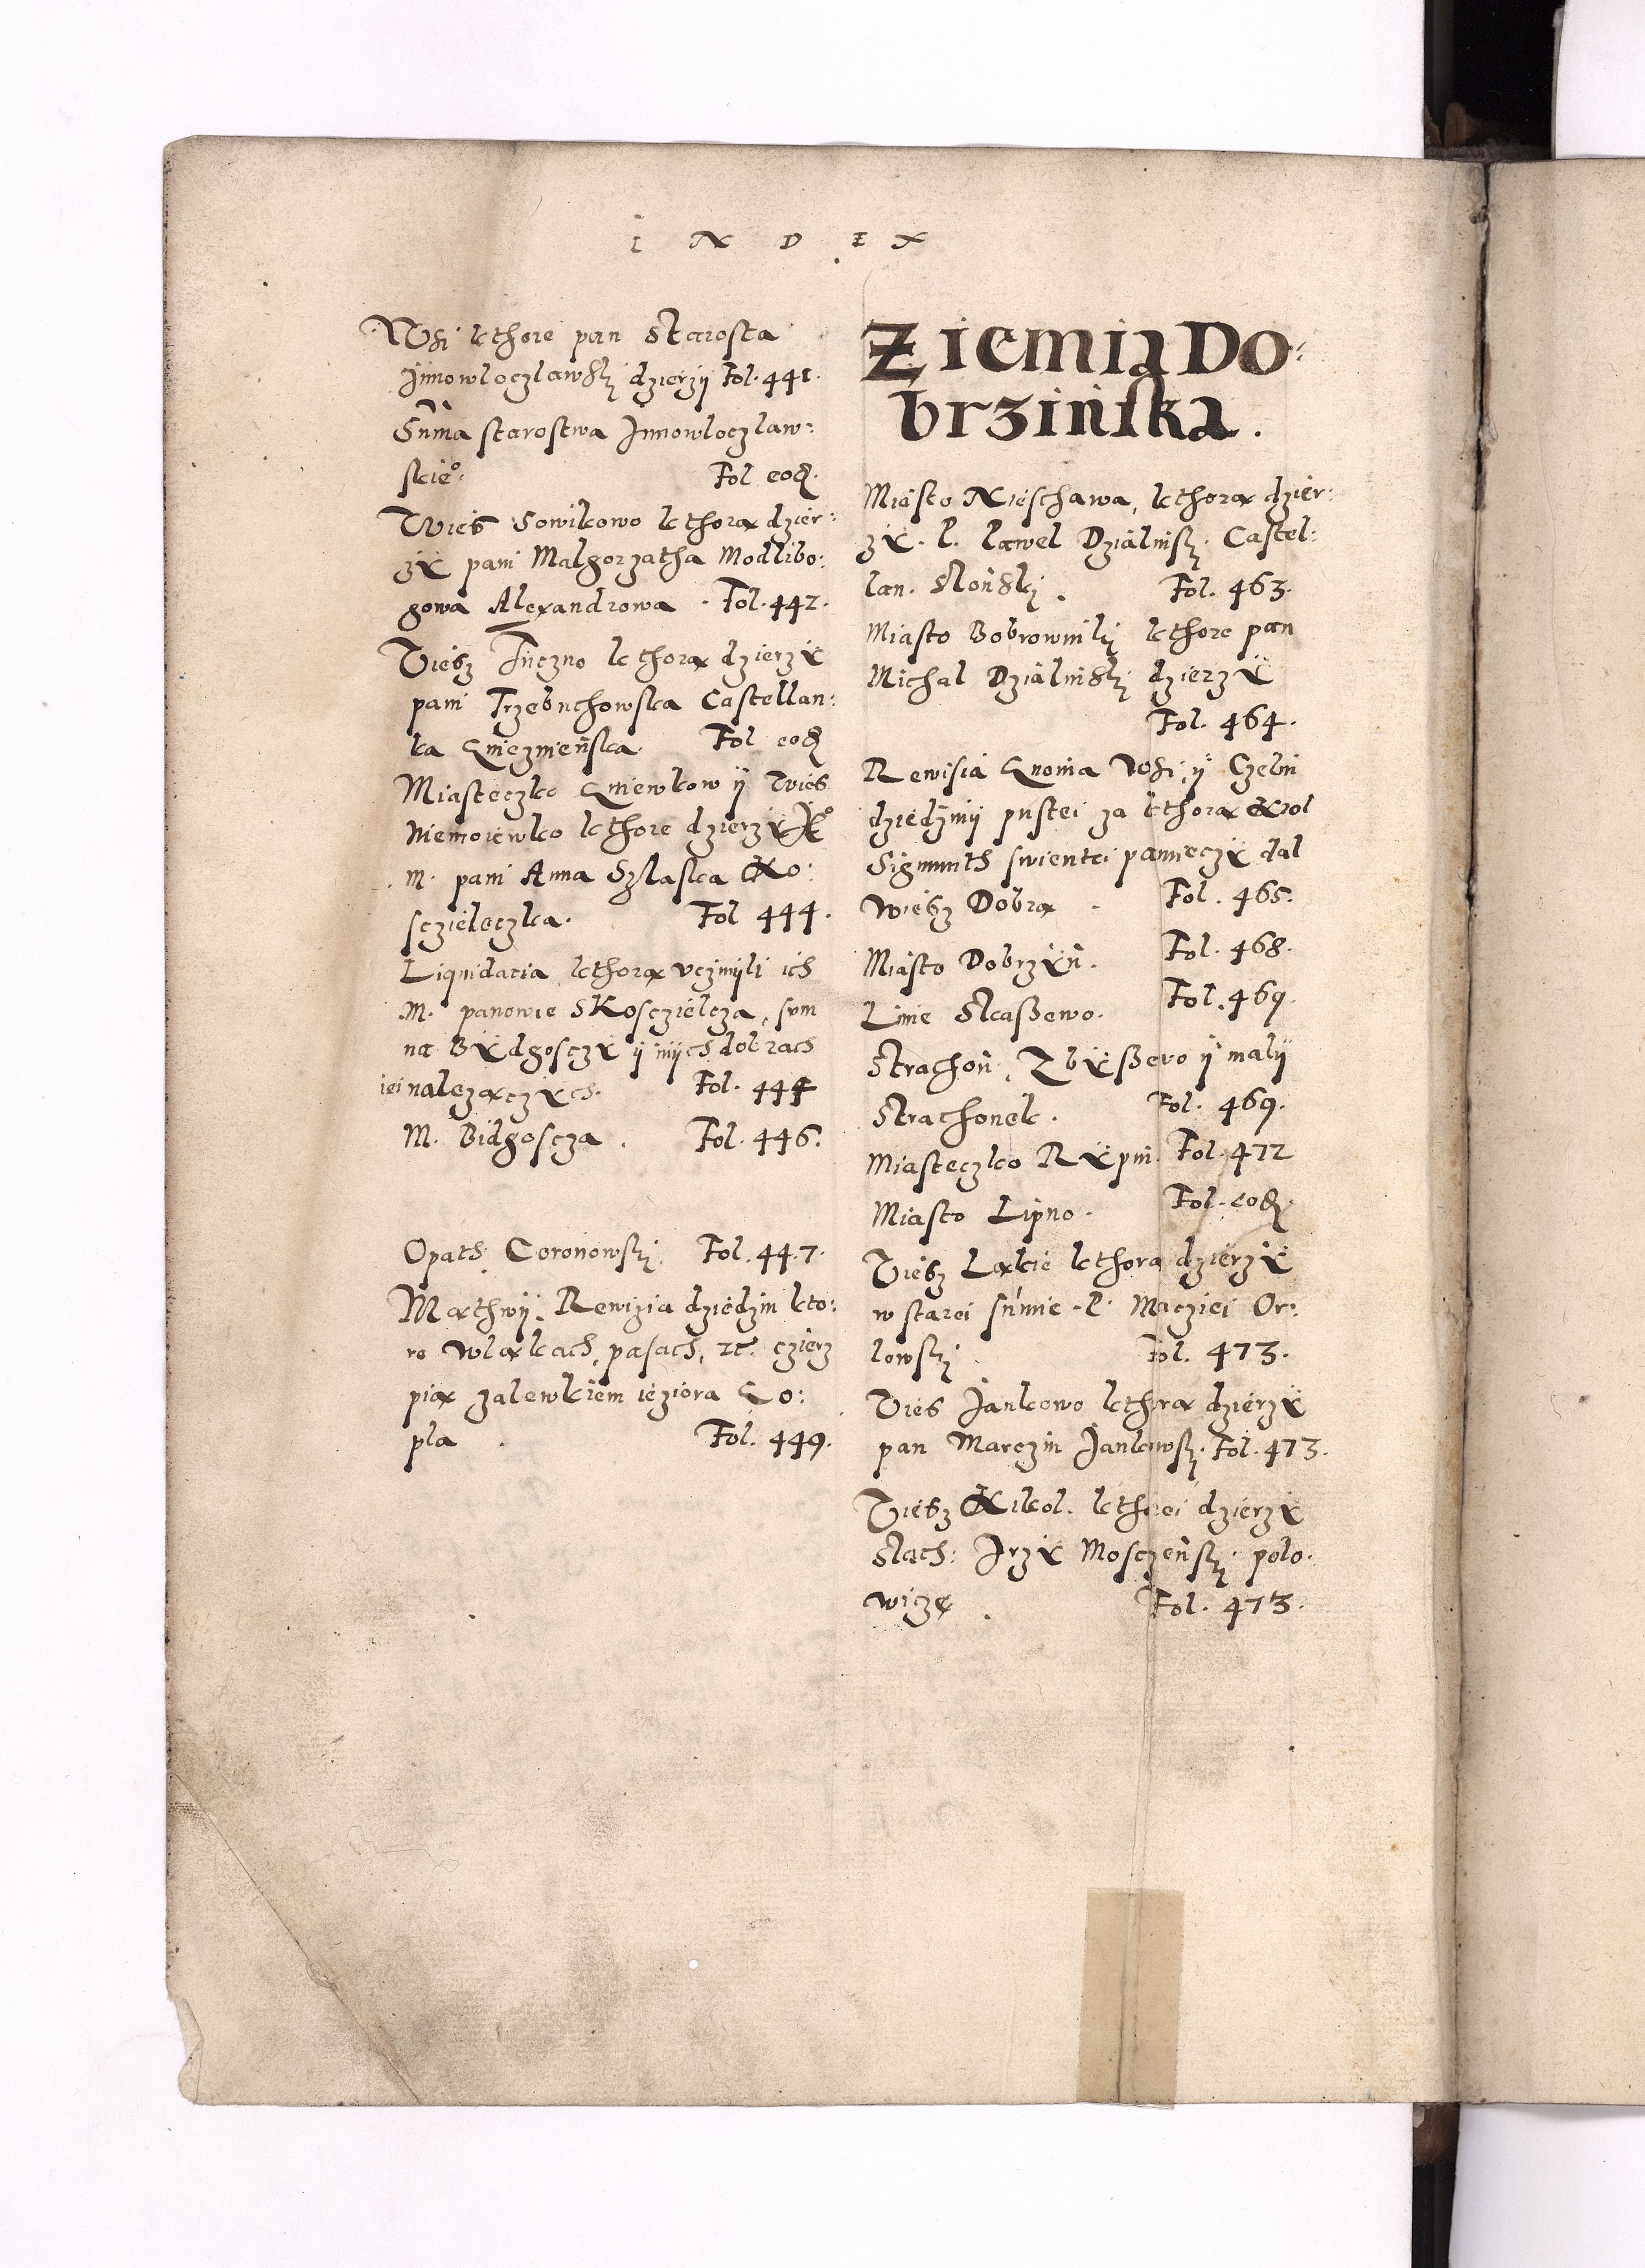 INDEX
Wsi kthore pan Starosta
Jnnowloczlawski dzierzÿ Fol. 441.
Suma starostwa Jnnowloczlaw:
skieº. Fol eod.
Wies Sowikowo kthora dzier:
zÿ pani Malgorzatha Modlibo:
gowa Alexandrowa. Fol. 442.
Viesz Tuczno kthora dzierzÿ
pani Trzebuchowska Castellan:
ka Gnieznieńska. Fol eod
Miasteczko Gniewkow ÿ Wies
Niemoiewko kthore dzierzÿ Jeº
M. pani Anna Szlaska Ko:
scieleczka. Fol 444.
Liquidacia kthorą vczinÿli ich
M. panowie S Kosczielcza, sum
na Bÿdgosczÿ ÿ inÿch dobrach
iei nalezączÿch. Fol. 444
M. Bidgoscza. Fol. 446.
Opath Coronowski. Fol. 447.
Marthwÿ. Rewizia dziedzin kto:
re w ląkach, pasach, etc. czierz
pią zalewkiem ieziora Go:
pla. Fol. 449.
Ziemia Do:
brzińska.
Miasto Nieschawa, kthorą dzier:
zÿ. P. Pawel Dzialinski. Castel:
lan. Slonski. Fol. 463.
Miasto Bobrowniki kthore pan
Michal Dzialinski dzierzÿ
Fol. 464.
Rewisia Gnoina Vosi, ÿ Czelin
dziedzinÿ pustei za kthorą Krol
Sigmunth swientei pamięczÿ dal
wiesz Dobra. Fol. 465.
Miasto Dobrzÿn. Fol. 468.
Linie Skaßewo. Fol. 469.
Strachoń, Zbÿßewo ÿ malÿ
Strachonek. Fol. 469.
Miasteczko Rÿpin. Fol. 472
Miasto Lipno. Fol. eod.
Viesz Ląkie kthora dzierzÿ
w starei sumie. P. Macziei Or:
lowski. Fol. 473.
Vies Jankowo kthora dzierzÿ
pan Marczin Jankowski. Fol. 473.
Viesz Kikol. kthorei dzierzÿ
Slach: Jrzÿ Mosczeński. polo.
wiczę. Fol. 473.